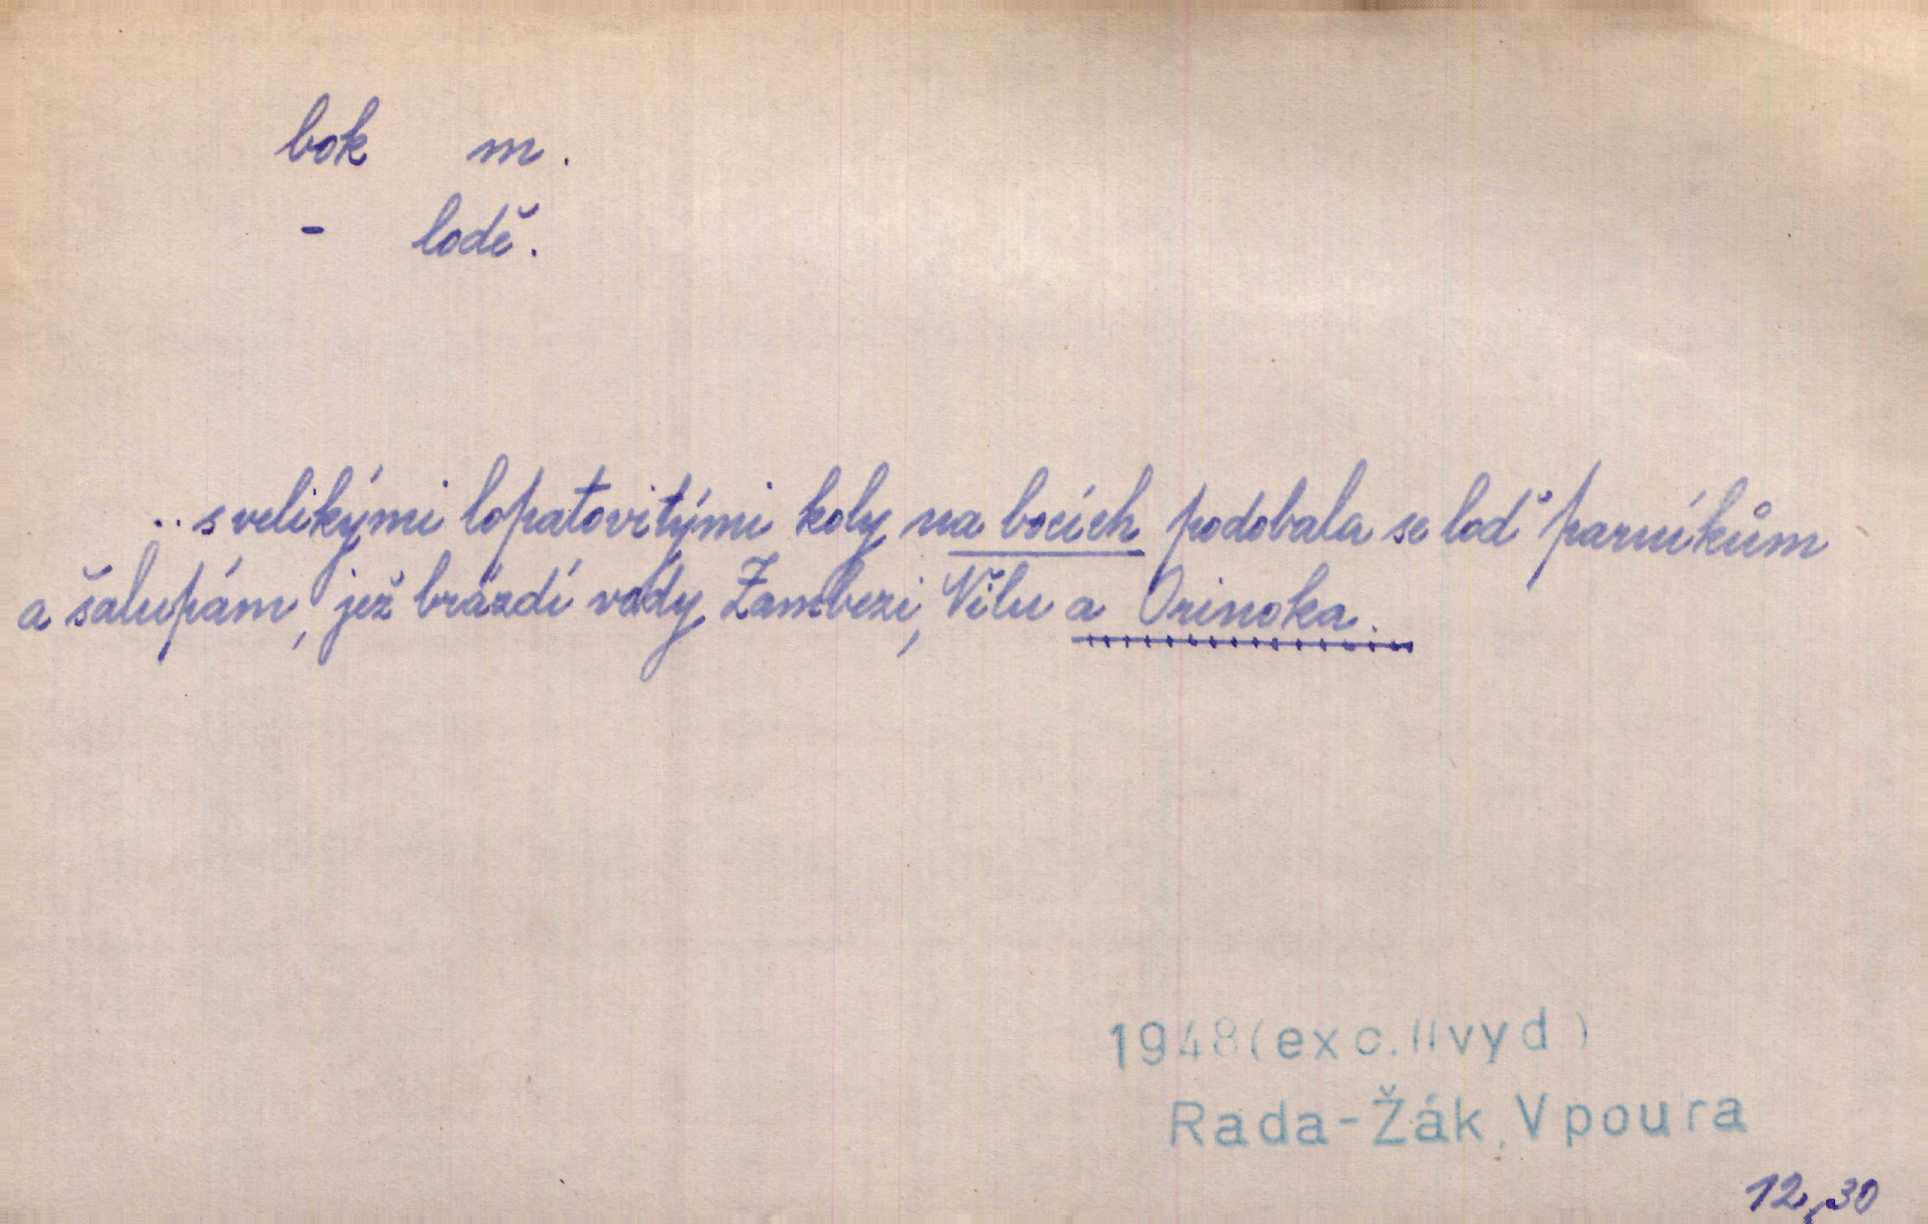 bok m.
- lodě.
.. s velikými lopatovitými koly na bocích podobala se loď parníkům
a šalupám, jež brázdí vody Zambezi, Nilu a Orinoka.
1948(exc.IIvyd)
Rada-Žák,Vpoura
12,30